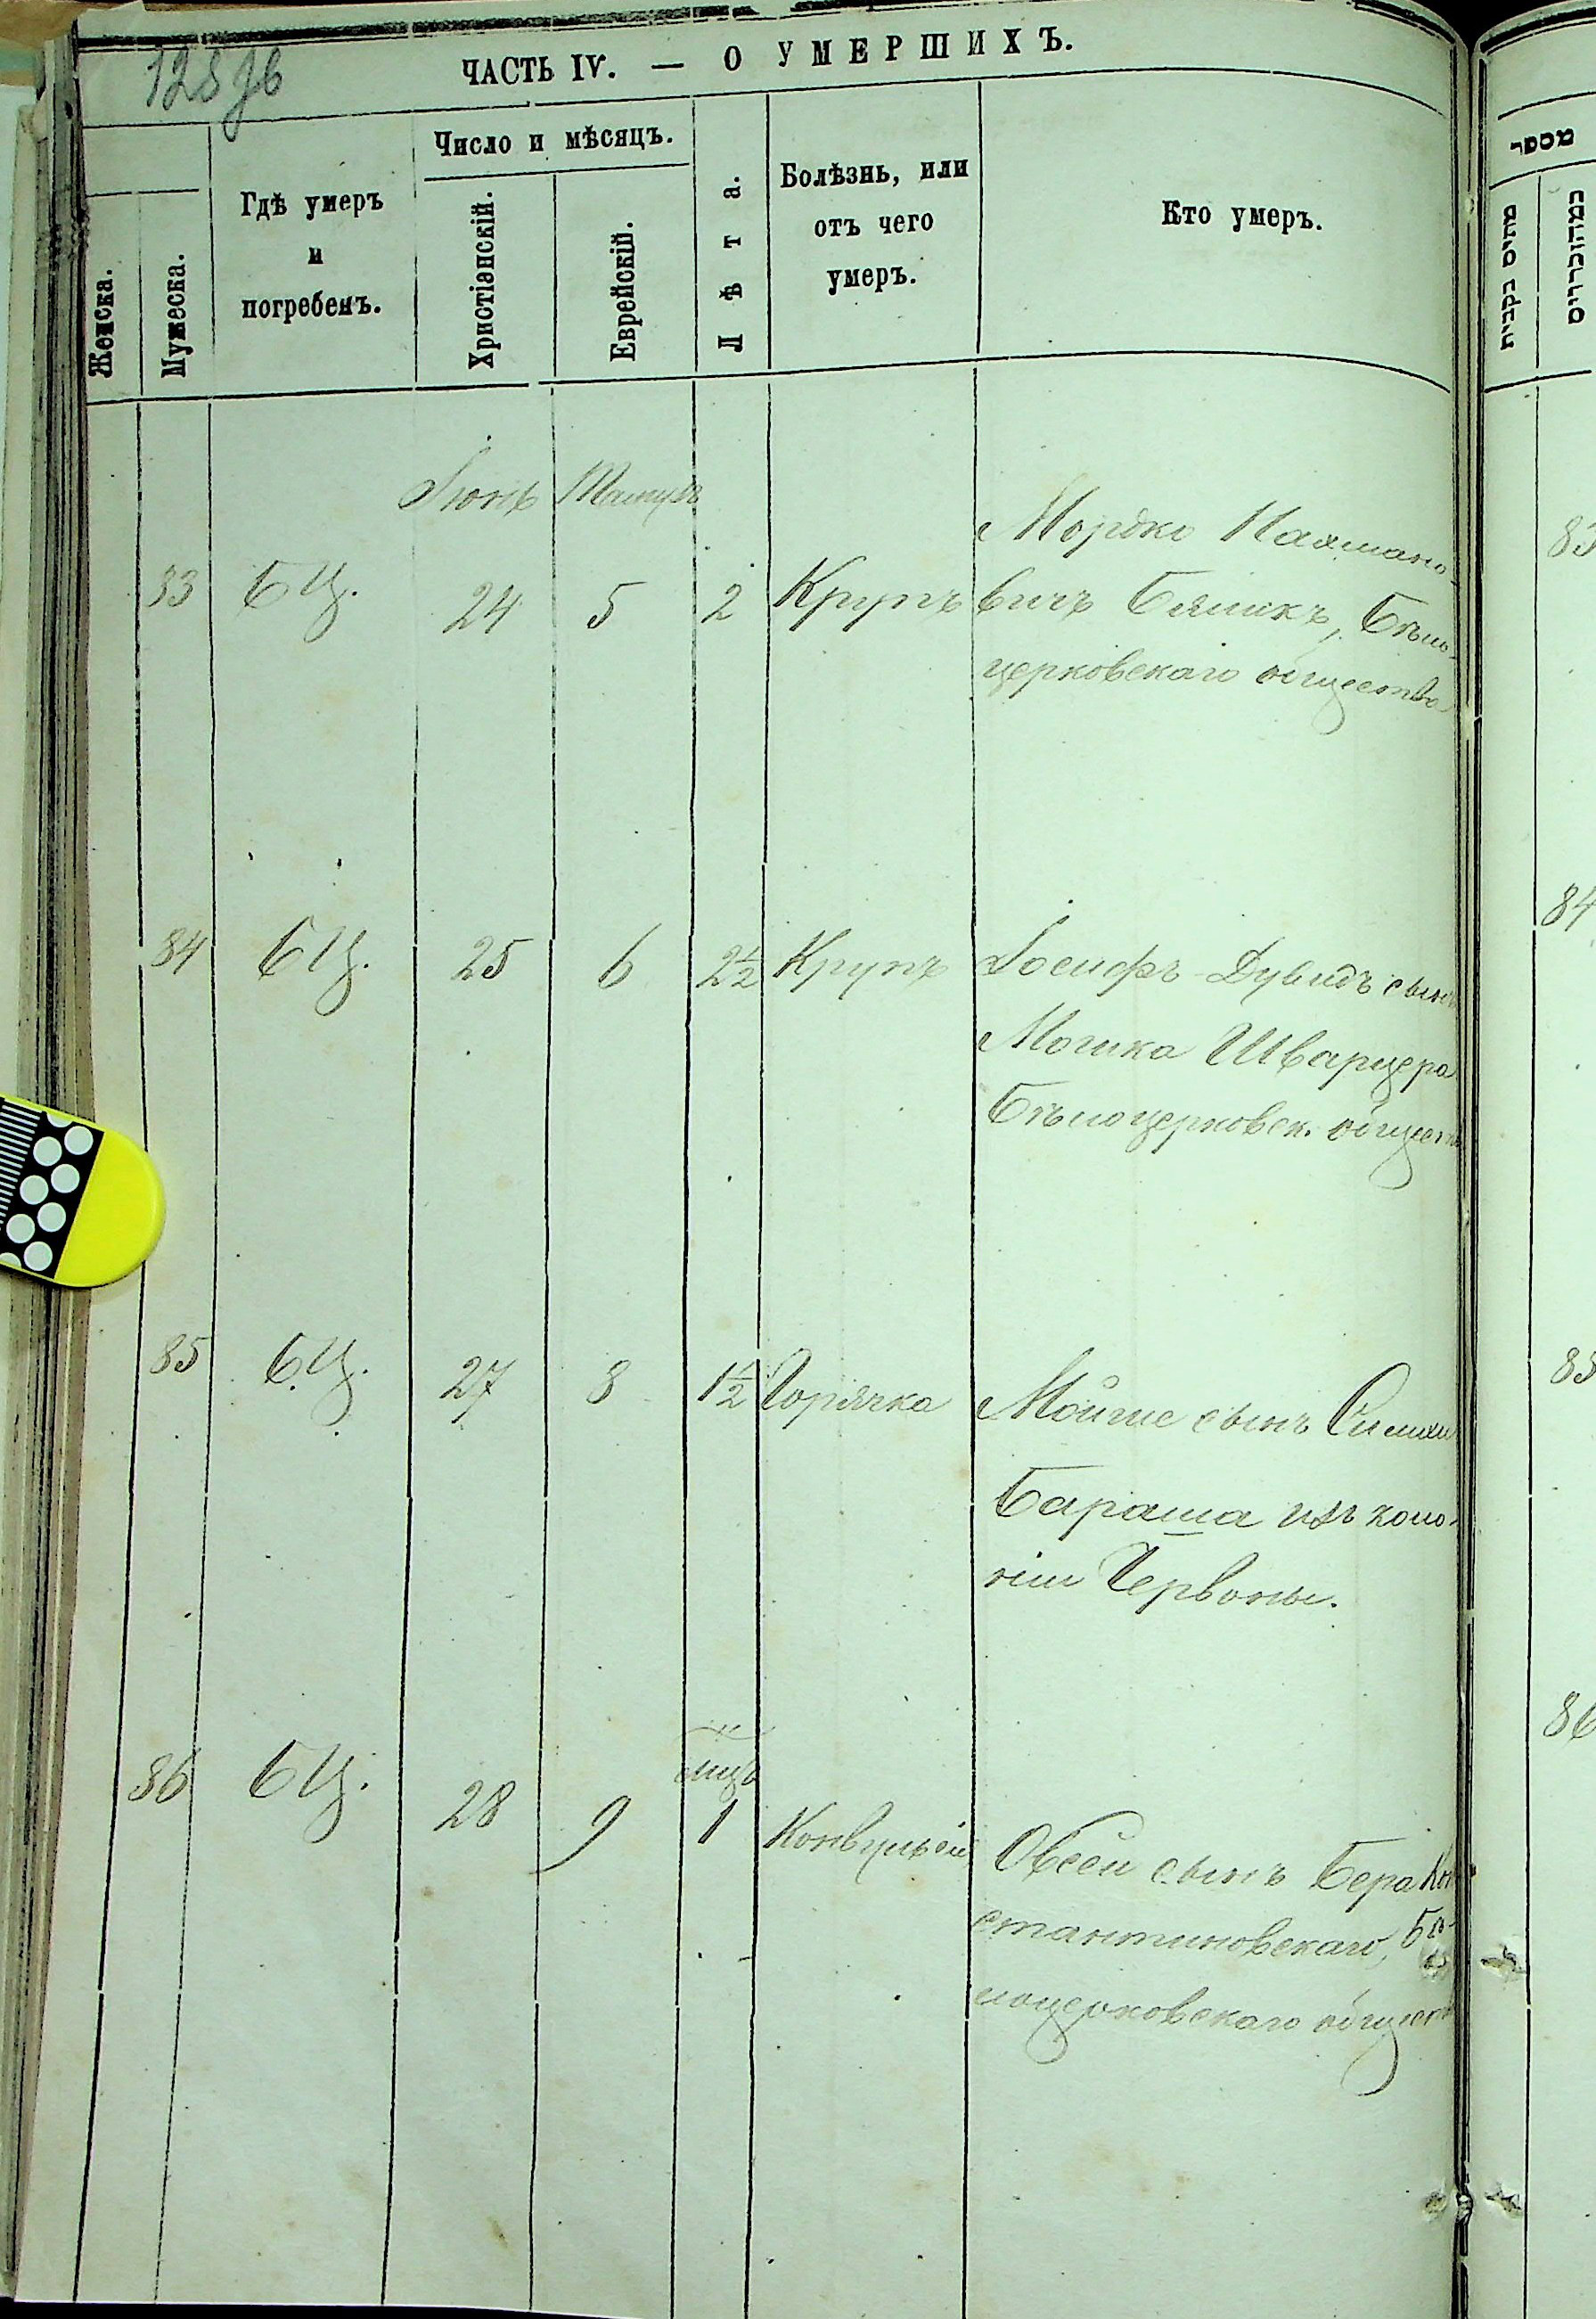 128 зв
ЧАСТЬ IV. — О УМЕРШИХЪ.
Женска.
Мужеска.
Гдѣ умеръ
и
погребенъ.
Число и мѣсяцъ.
Христіанскій.
Еврейскій.
Лѣта.
Болѣзнь, или
отъ чего
умеръ.
Кто умеръ.
Іюнь Тамузъ
83 БЦ. 24 5 2 Крупъ
Мордко Нахмано-
вичъ Бяликъ, Бѣло-
церковскаго общества
84 БЦ. 25 6 2½ Крупъ
Іосифъ-Дувидъ сынъ
Мошка Шварцера
Бѣлоцерковск. общест
85 Б.Ц. 27 8 1½ Горячка
Мойше сынъ
Бараша изъ коло-
ніи Червоны.
86 БЦ. 28 9 мцъ 1
Овсей сынъ Бера Кон
стантиновскаго, Бѣ-
лоцерковскаго общест
מספר
מתים בקבית
כמהזכרים
83
84
85
86